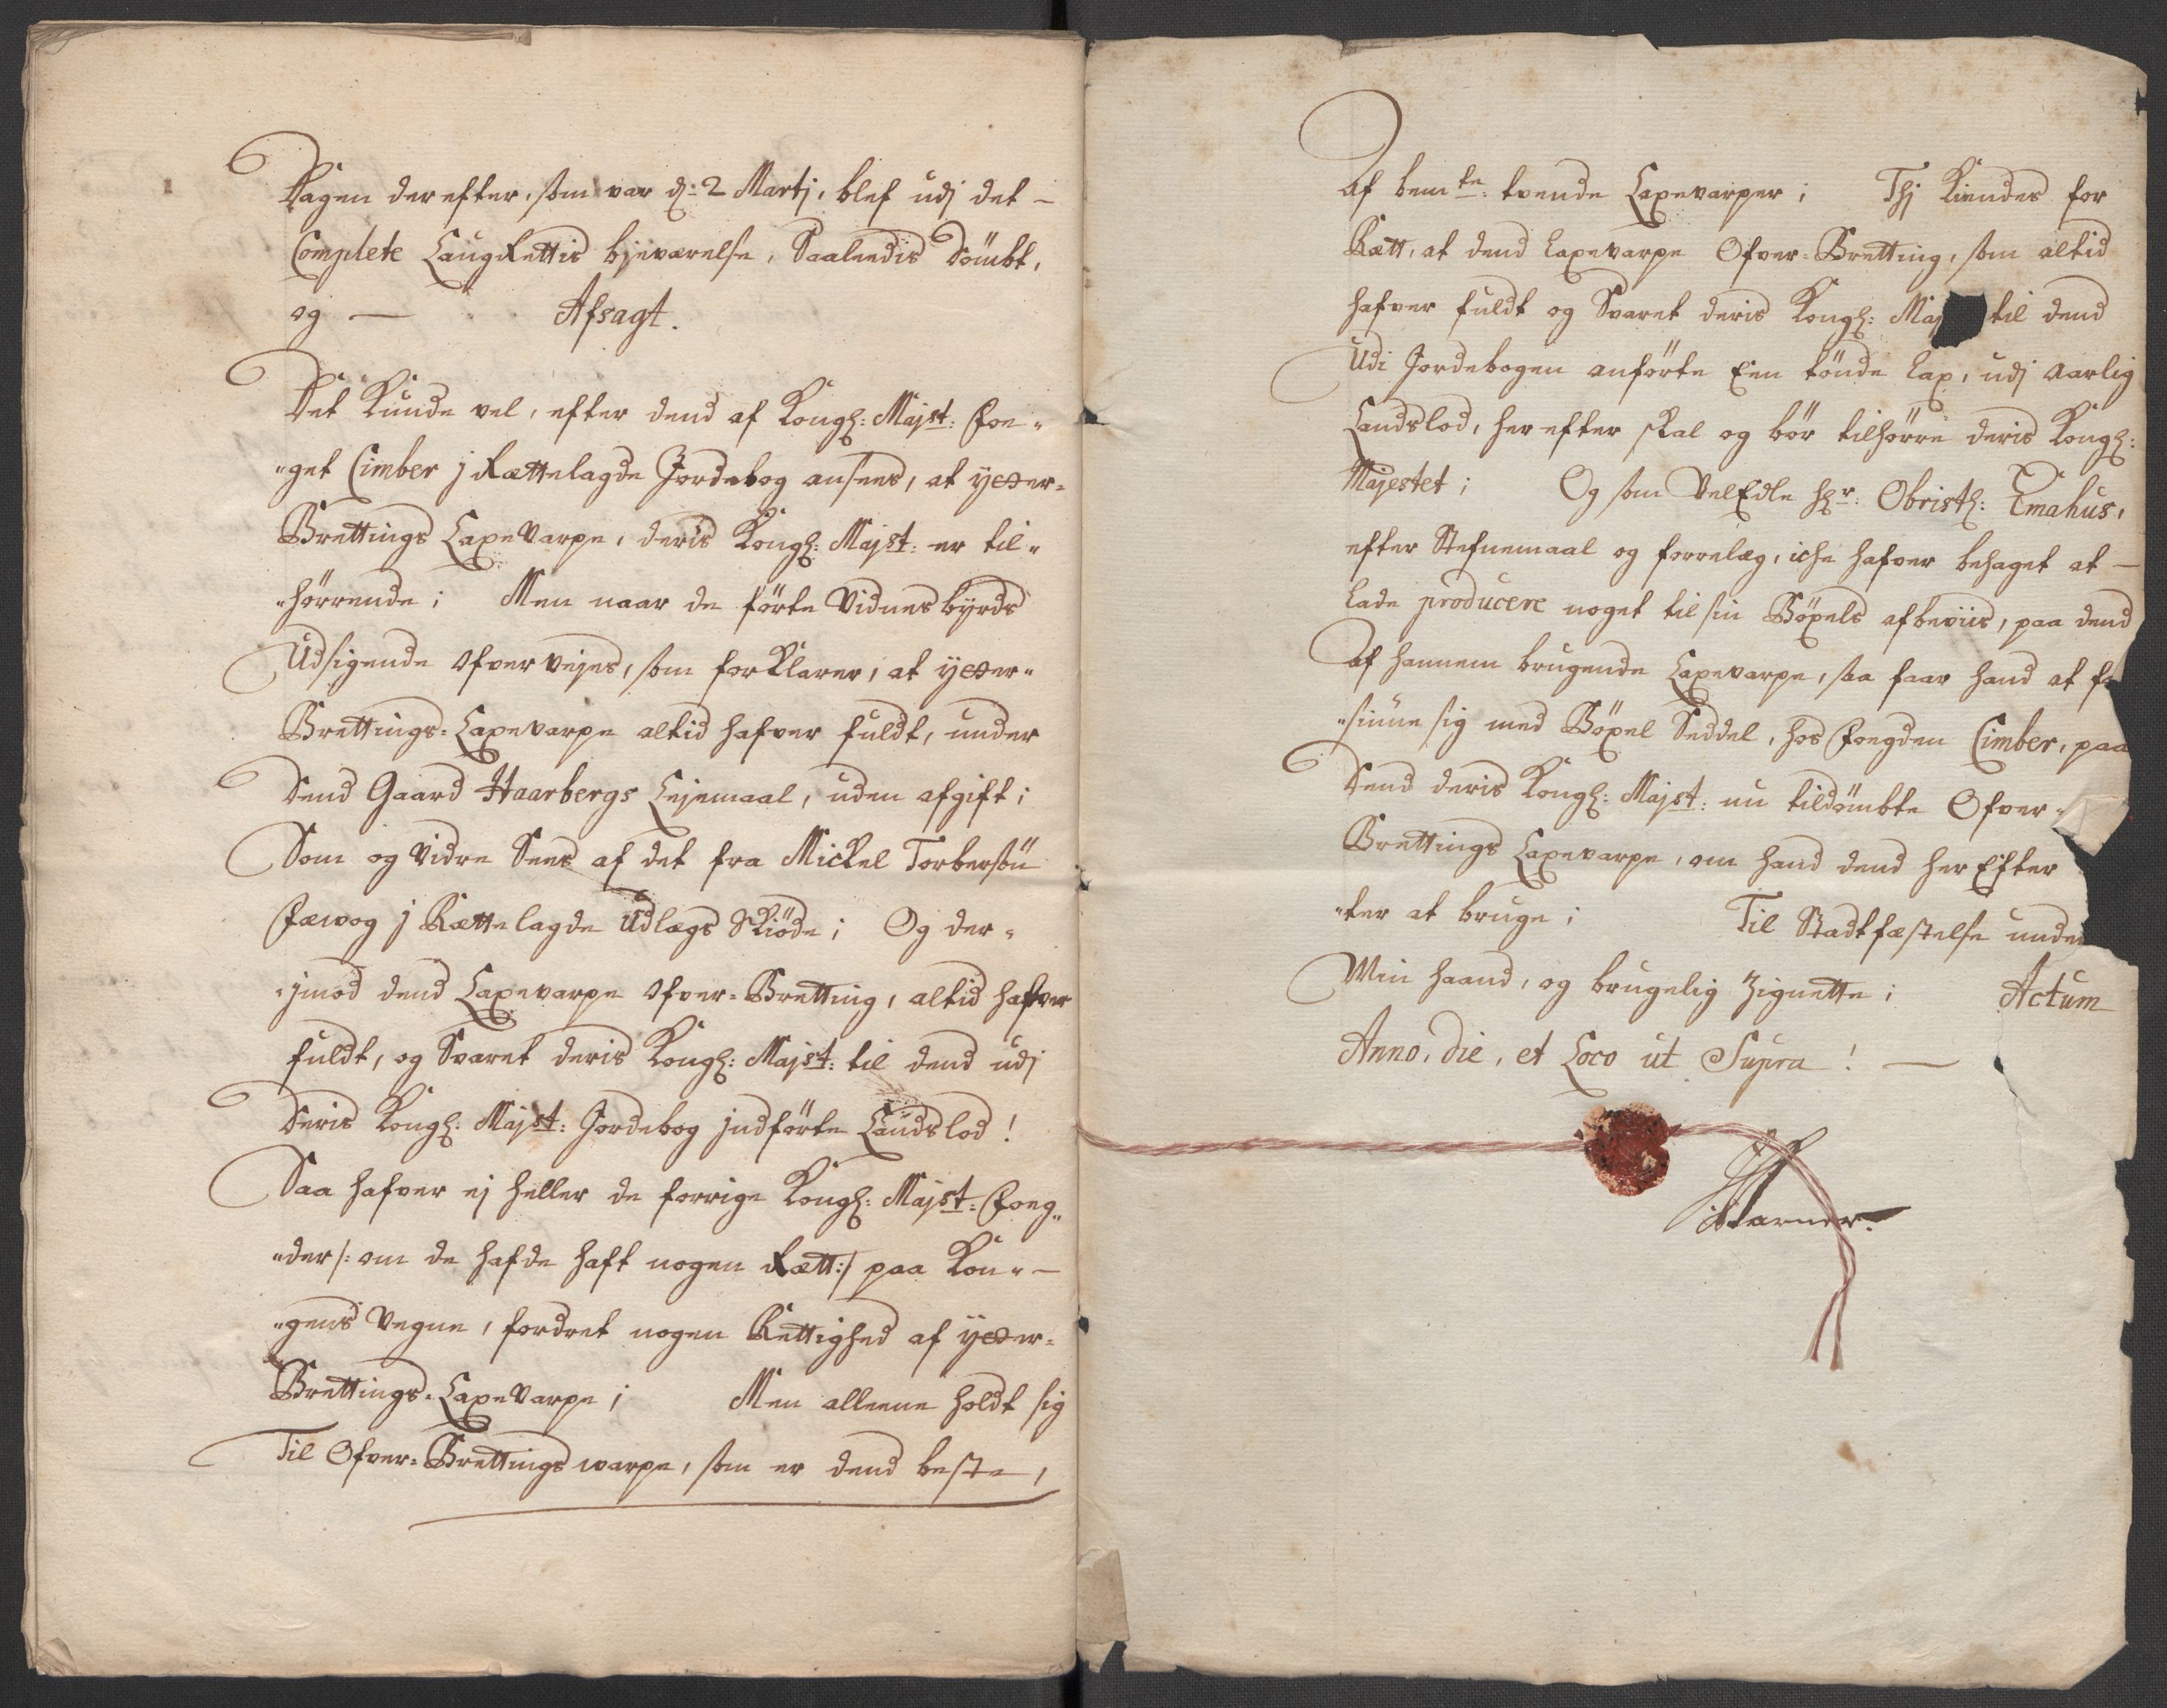 Dagen der efter, som var d: 2 Martj, blef udj det -
Complete LaugRettis bjeværelse, Saaledis Dömbt,
og — Afsagt.
Det Kunde vel, efter dend af Kongl: Majst: Foe„
„get Cimber j Rættelagde Jordebog ansees, at yDer=
Brettings LaxeVarpe, deris Kongl: Majst: er til„
„hörrende; Men naar de förte Vidnes byrds
Udsigende ofverVejes, som forKlarer, at yDer„
Brettings=Laxevarpe altid hafver fuldt, under
Dend Gaard Haarbergs Lejemaal, uden afgift;
Som og Vidre Sees af det fra Mickel Torbersön
Fæwog j Rættelagde Udlægs Skiöde; Og der„
„jmod dend Laxevarpe Ofver=Bretting, altid hafver
fuldt, og Svaret deris Kongl: Majst: til dend udj
Deris Kongl: Majst: Jordebog jndförte Landslod!
Saa hafver ej heller de forrige Kongl: Majst: Foeg„
„der /: om de hafde haft nogen Rætt :/ paa Kon„ —
„gens Vegne, fordret nogen Rettighed af yDer=
Brettings=LaxeVarpe; Men alleene holdt sig
Til Ofver=Brettings warpe, som er dend beste,
Af bemte: tvende Laxevarper; Thj Kiendes for
Rætt, at dend Laxevarpe Ofver=Bretting, som altid
hafver fuldt og Svaret deris Kongl: Maj til dend
Udi Jordebogen anförte Een tönde Lax, udj aarlig
Landslod, her efter skal og bör tilhörre deris Kongl:
Majestet; Og som VelEdle Hr: Obristl: Emahus,
efter Stefnemaal og forrelæg, iche hafver behaget at —
lade producere noget til sin Böxels afbeviis, paa dend
Af hannem brugende Laxevarpe, saa faar hand at
„sinne sig med Böxel Seddel, hos Foegden Cimber, paa
Dend deris Kongl: Majst: nu tildömbte Ofver=
Brettings Laxevarpe, om hand dend her Efter
„ter at bruge; Til Stadtfæstelse under
Min haand, og brugelig Zignette; Actum
Anno, die, et Loco ut Supra! —